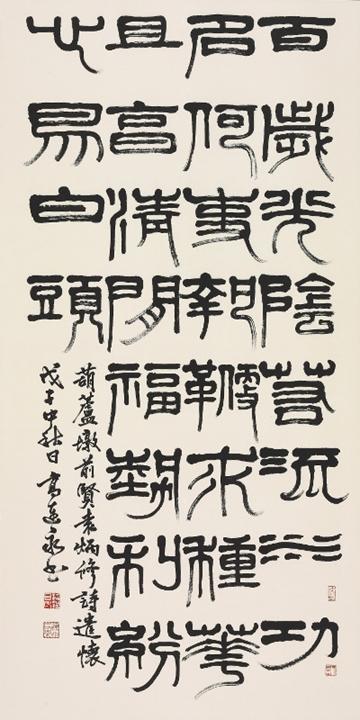 百歲光陰若流水功
名何事執鞭求種華
且享清閒福勢利紛
心易白頭
葫蘆墩前賢袁炳修詩遣懷
戊子中秋日高連永書